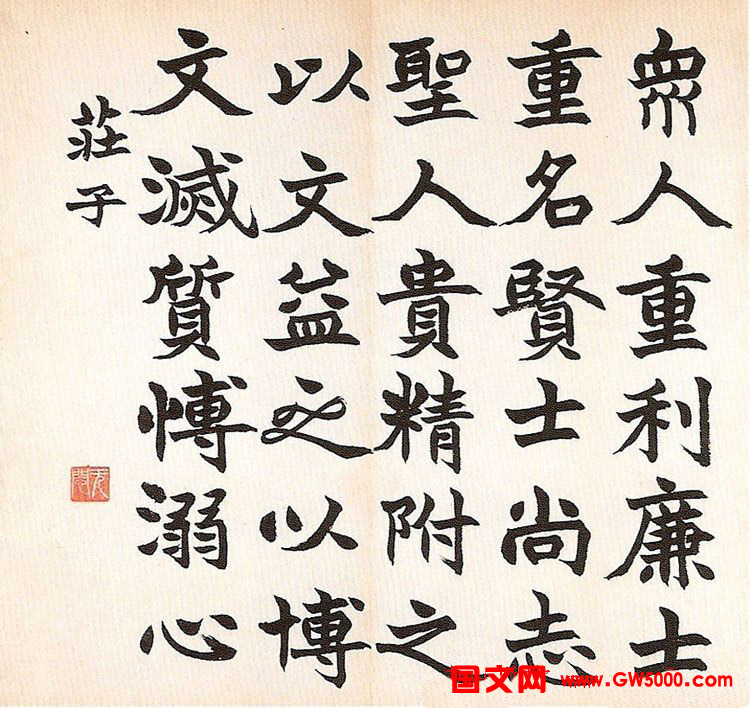 衆人重利廉士
重名賢士尚志
聖人貴精附之
以文益之以博
文滅質愽溺心
莊子
国文网 www.GW5000.com